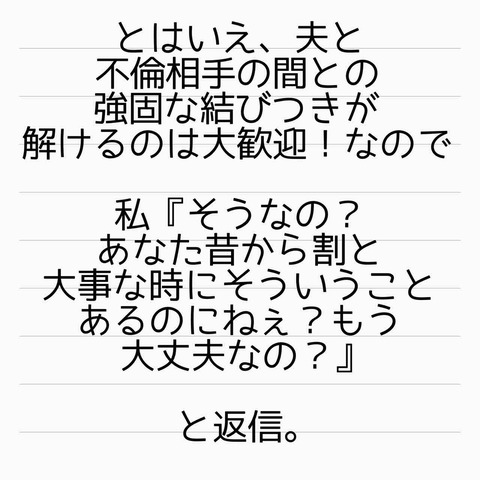 とはいえ、夫と
不倫相手の間との
強固な結びつきが
解けるのは大歓迎！なので
私『そうなの？
あなた昔から割と
大事な時にそういうこと
あるのにねぇ？もう
大丈夫なの？』
と返信。